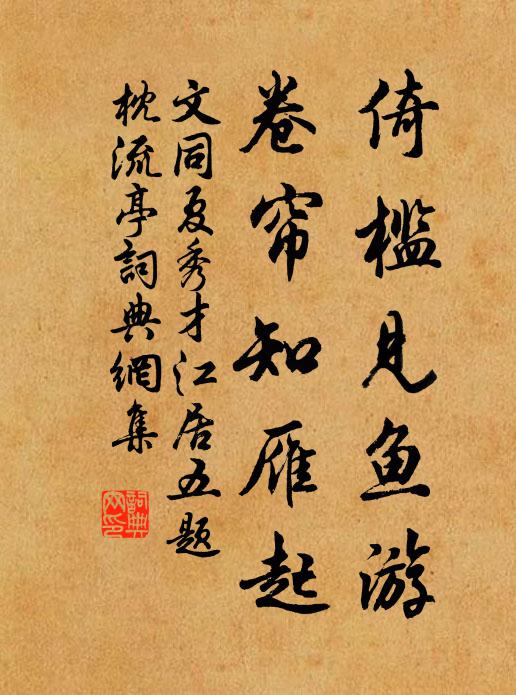 倚槛见鱼游
卷帘知雁起
文同夏秀才江居五题
枕流亭词典網集
詞典網印